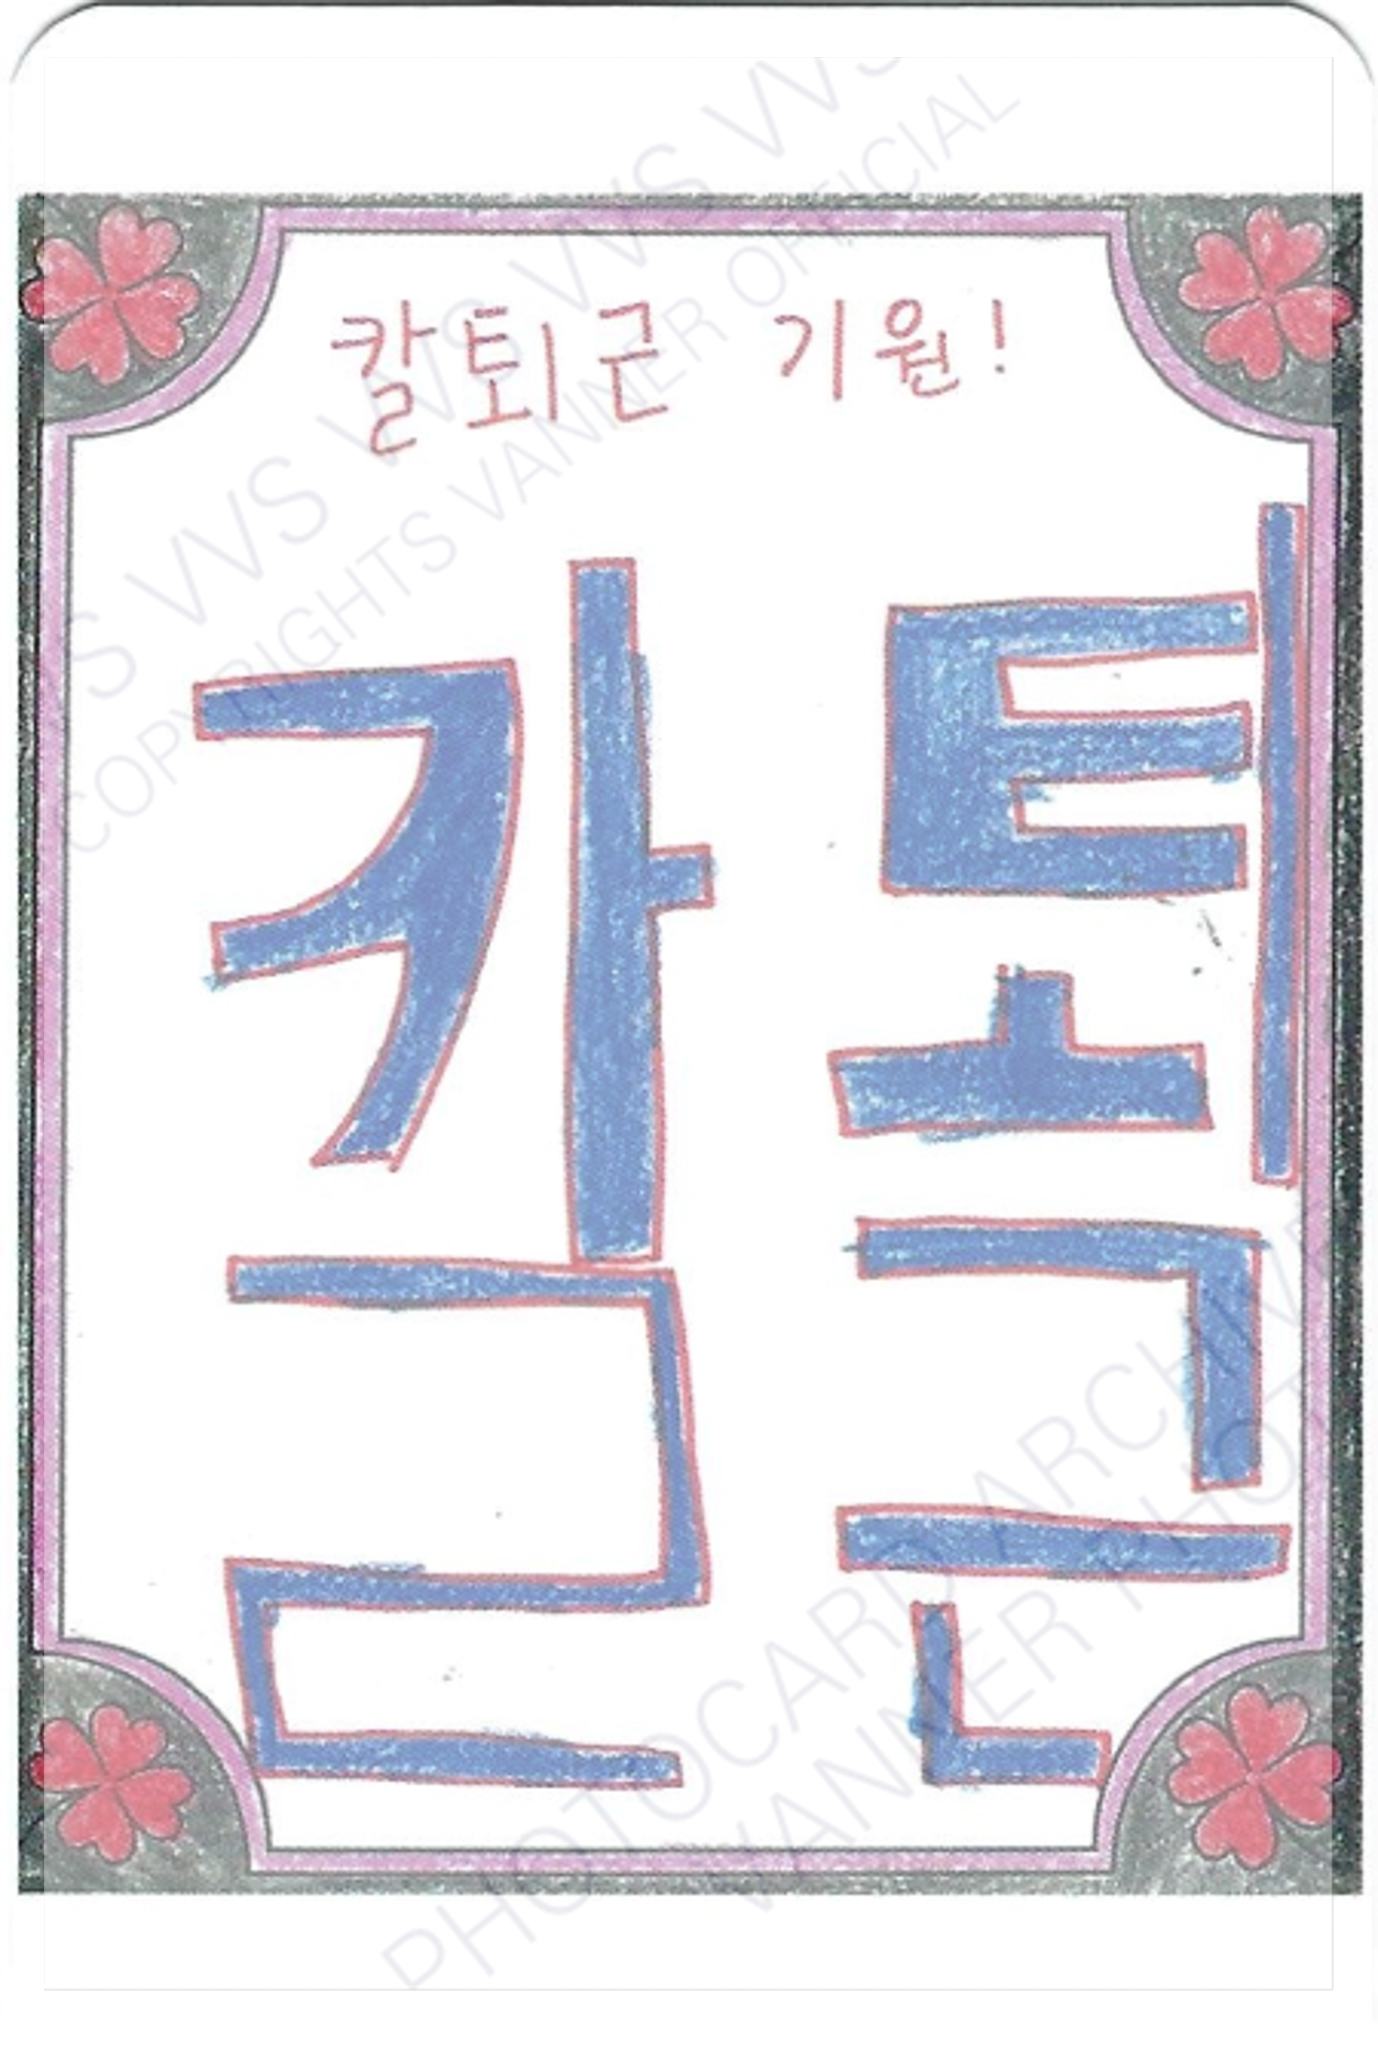 칼퇴근 기원!
칼퇴
근
VVS VVS VVS VVS
COPYRIGHTS VANNER OFFICIAL
PHOTOCARD ARCHIVE
VANNER PHOT